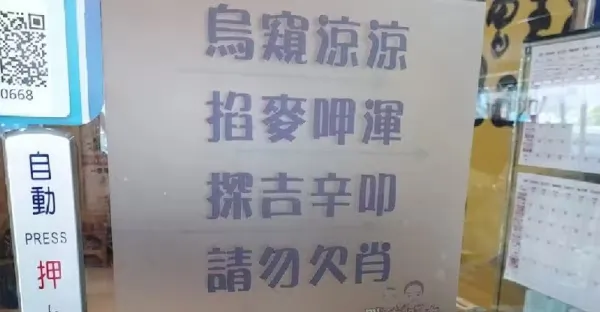 烏窺涼涼
掐麥呷渾
探吉辛叩
請勿欠肖
0668
自動
PRESS
押